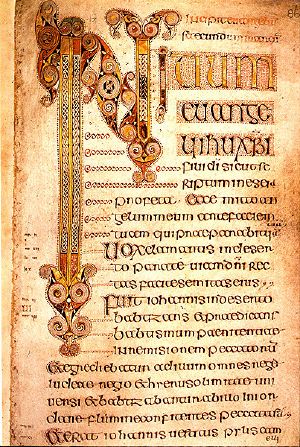 INITIUM
euange
lii ihu xpi
fili di sicut
scriptum est in esaia
profeta Ecce mitto an
gelum meum ante faciem
tuam qui praeparabit
Uox clamantis in deserto
parate uiam dni Rec
tas facite semitas eius
Fuit iohannis in deserto
babtizans et praedicans
babtismum paenitentiae
in remisionem peccatorum
Et egrediebatur ad illum omnes
iudeae regio et hierusolimitae uni
uersi et babtizabantur ab illo in ior
dane flumine confitentes peccata sua
Et erat iohannis uestitus pilis cam
eli